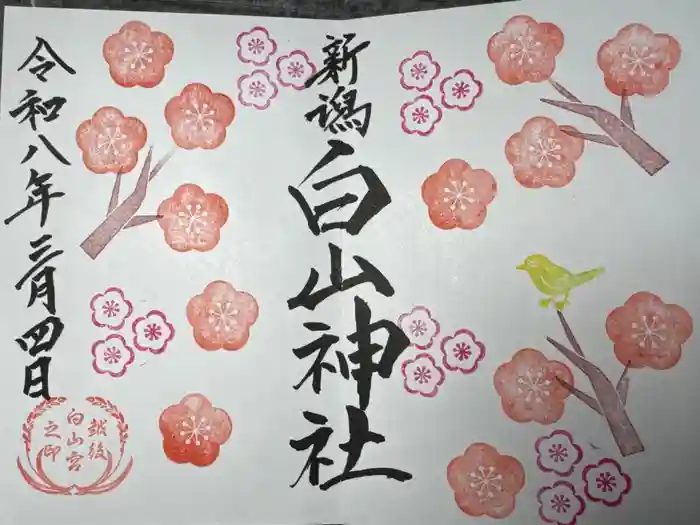 新潟
白山神社
令和八年三月四日
越後
白山宮
之印